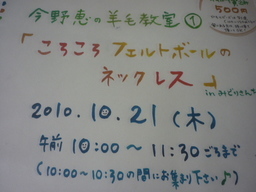 500円
今野恵の羊毛教室①
「ころころフェルトボールの
ネックレス」
in みどりさんち
2010.10.21(木)
午前10:00～11:30ごろまで
(10:00～10:30の間にお集まり下さい♪)